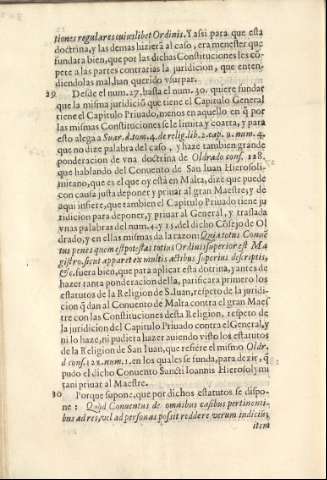 tiones regulares cuiuslibet Ordinis. Y assi para que esta
doctrina, y las demas luziera al caso, era menester que
fundara bien, que por las dichas Constituciones les cõ-
pete a las partes contrarias la juridicion, que enten-
diendolas mal, han querido vsurpar.
29 Desde el num. 27. hasta el num. 30. quiere fundar
que la misma juridiciõ que tiene el Capitulo General
tiene el Capitulo Priuado, menos en aquello en q̃ por
las mismas Constituciones se le limita y coarta, y para
esto alega a Suar. d. tom. 4. de relig. lib. 2. cap. 9. num. 4.
que no dize palabra del caso, y haze tambien grande
ponderacion de vna doctrina de Oldrado cons. 128.
que hablando del Conuento de San Iuan Hierosoli-
mitano, que es el que oy està en Malta, dize que puede
con causa justa deponer, y priuar al gran Maestre, y de
aqui infiere, que tambien el Capitulo Priuado tiene ju
ridicion para deponer, y priuar al General, y traslada
vnas palabras del num. 4. y 15. del dicho Cõsejo de Ol
drado, y en ellas mismas da la razon: Quia totus Conuẽ
tus penes quem est potestas totius Ordinis superior est Ma
gistro, sicut apparet ex multis actibus superius descriptis,
&c. fuera bien, que para aplicar esta dotrina, y antes de
hazer tanta ponderacion della, parificara primero los
estatutos de la Religion de S. Iuan, respeto de la juridi-
cion q̃ dan al Conuento de Malta contra el gran Maes
tre con las Constituciones desta Religion, respeto de
la juridicion del Capitulo Priuado contra el General, y
ni lo haze, ni pudiera hazer auiendo visto los estatutos
de la Religion de San Iuan, que refiere el mismo Oldr.
d. cons. 128. num. 1. en los quales se funda, para dezir, q̃
pudo el dicho Conuento Sancti Ioannis Hierosolymi
tani priuar al Maestre.
30 Porque supone, que por dichos estatutos se dispo-
ne: Quod Conuentus de omnibus casibus pertinenti-
bus ad res, vel ad personas possit reddere verum indicium,
item